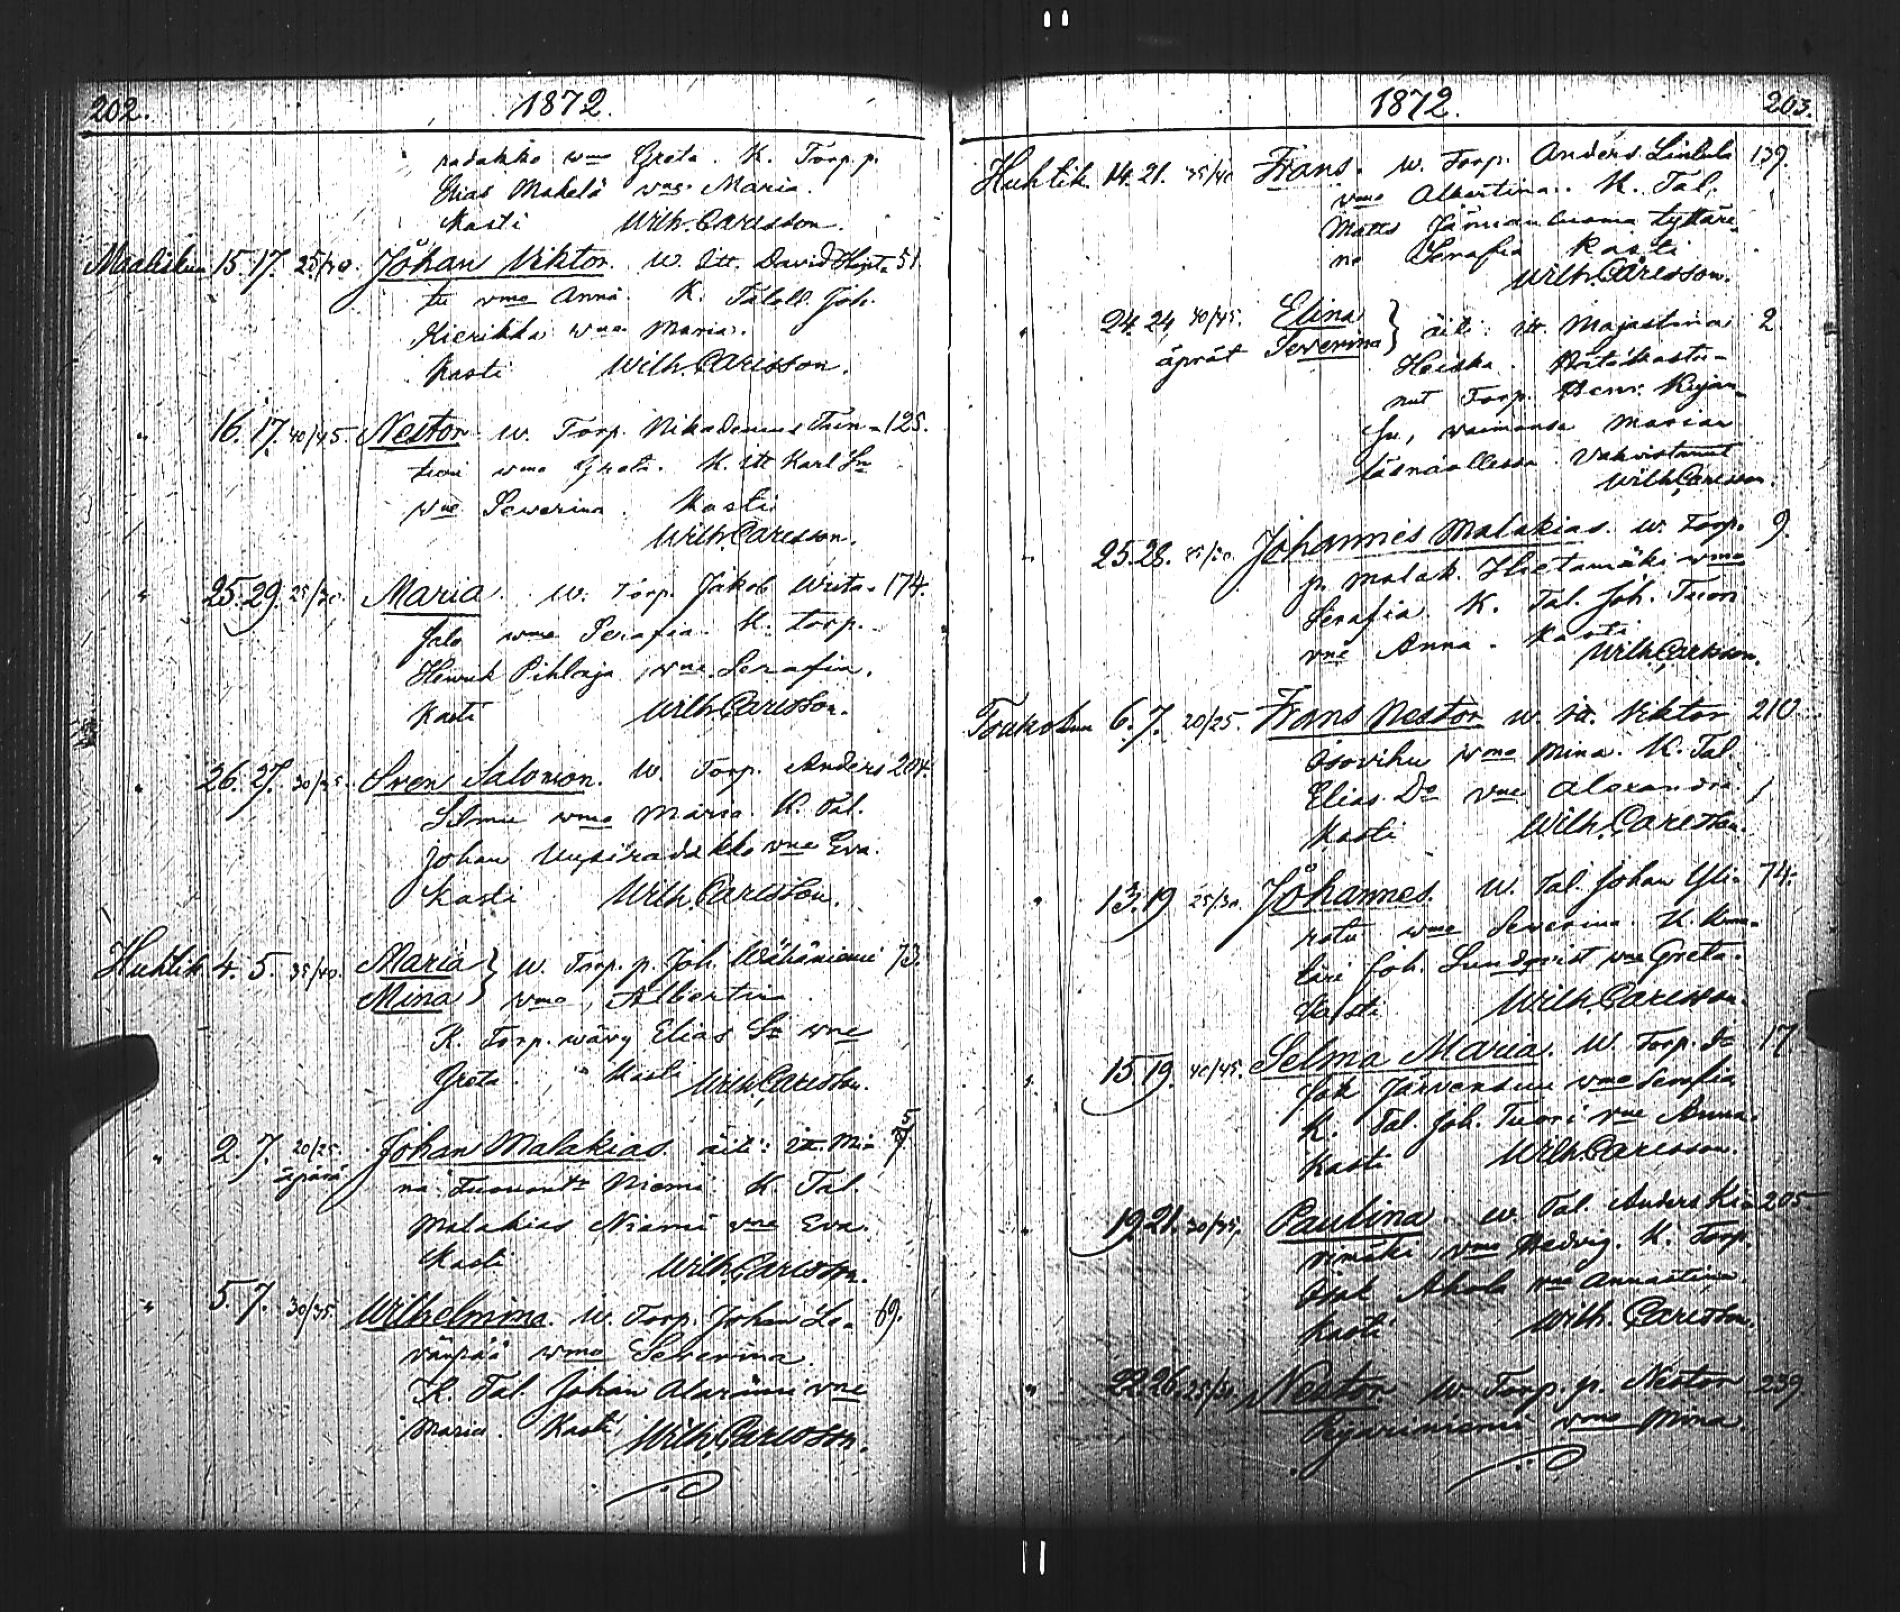 202. 1872.
radakko wmo Greta. K. Torp. p.
Elias Mäkelä vne Maria.
Kasti Wilh. Carlsson.
Maalisku 15. 17. 25/30. Johan Viktor. W. Itt. David Hint- 51.
tu vmo Anna. K. Taloll. Joh.
Kierikka wne Maria.
Kasti Wilh. Carlsson.
" 16. 17. 40/45. Nestor. W. Torp. Nikademus Tun- 125.
turi wmo Greta. K. Itt Karl Sn
vne Severina. Kasti
Wilh. Carlsson.
" 25. 29. 25/30. Maria. W. Torp. Jakob Writa- 174.
Jalo wmo Serafia. K. torp.
Henrik Pihlaja, vne Serafia.
Kasti Wilh. Carlsson.
" 26. 27. 30/35. Sven Salomon. W. Torp. Anders 204.
wmo Maria. K. Tal.
Johan Uusiradakko vne Eva.
Kasti Wilh. Carlsson.
Huhtik. 4. 5. 35/40. Maria } W. Torp. p. Joh. Wähäniemi 73.
Mina } vmo, Albertina
K. Torp. wävy Elias Sn vne
Greta. Kasti Wilh. Carlsson.
" 2. 7. 20/25. Johan Malakias. äiti: itt. Mi- 5
äpärä na Niemi K. Tal.
Malakias Niemi vne Eva.
Kasti Wilh. Carlsson.
" 5. 7. 30/35. Wilhelmina. W. Torp. Johan Le- 69.
vänpää wmo Severina.
K. Tal. Johan Alarämi vne
Maria. Kasti Wilh. Carlsson.
1872. 203.
Huhtik. 14. 21. 35/40 Frans. W. Torp. Anders Lintula 139.
vmo Albertina. K. Tal.
Matts tyttäre
ne Serafia Kasti
Wilh. Carlsson.
" 24. 24. 40/45. Elina } äiti: itt. Majastina 2.
äprät Severina } Heiska. Hätäkastu-
nut Torp. Henr. Kujan-
Su, waimonsa Marian
läsnäollessa. Vahvistanut
Wilh. Carlsson.
" 25. 28. Johannes Malakias. W. Torp. 9.
p. Malak. Hietamäki vmo
Serafia. K. Tal. Joh. Tuori
vne Anna. Kasti
Wilh. Carlsson.
Toukokuu 6. 7. 20/25. Frans Nestor W. Itt. Viktor 210.
Osoviku vmo Mina. K. Tal.
Elias Do vne Alexandra.
Kasti Wilh. Carlsson.
" 13. 19. 25/30. Johannes. W. Tal. Johan Yli- 74.
rotu wmo Severina. K.
täri Joh. Lundqvist vne Greta.
Kasti Wilh. Carlsson.
" 15. 19. 40/45. Selma Maria. W. Torp. 17.
Jak Järvensuu vmo Serafia
K. Tal. Joh. Tuori vne Anna.
Kasti Wilh. Carlsson.
" 19. 21. 30/35. Paulina. W. Tal. Anders Ki- 205.
vimäki, vmo Hedvig. K. Torp.
Isak Ahola vne Annastina.
Kasti Wilh. Carlsson.
" 22. 26. 25/30. Nestor. W. Torp. p. Nestor 239
vmo Mina.